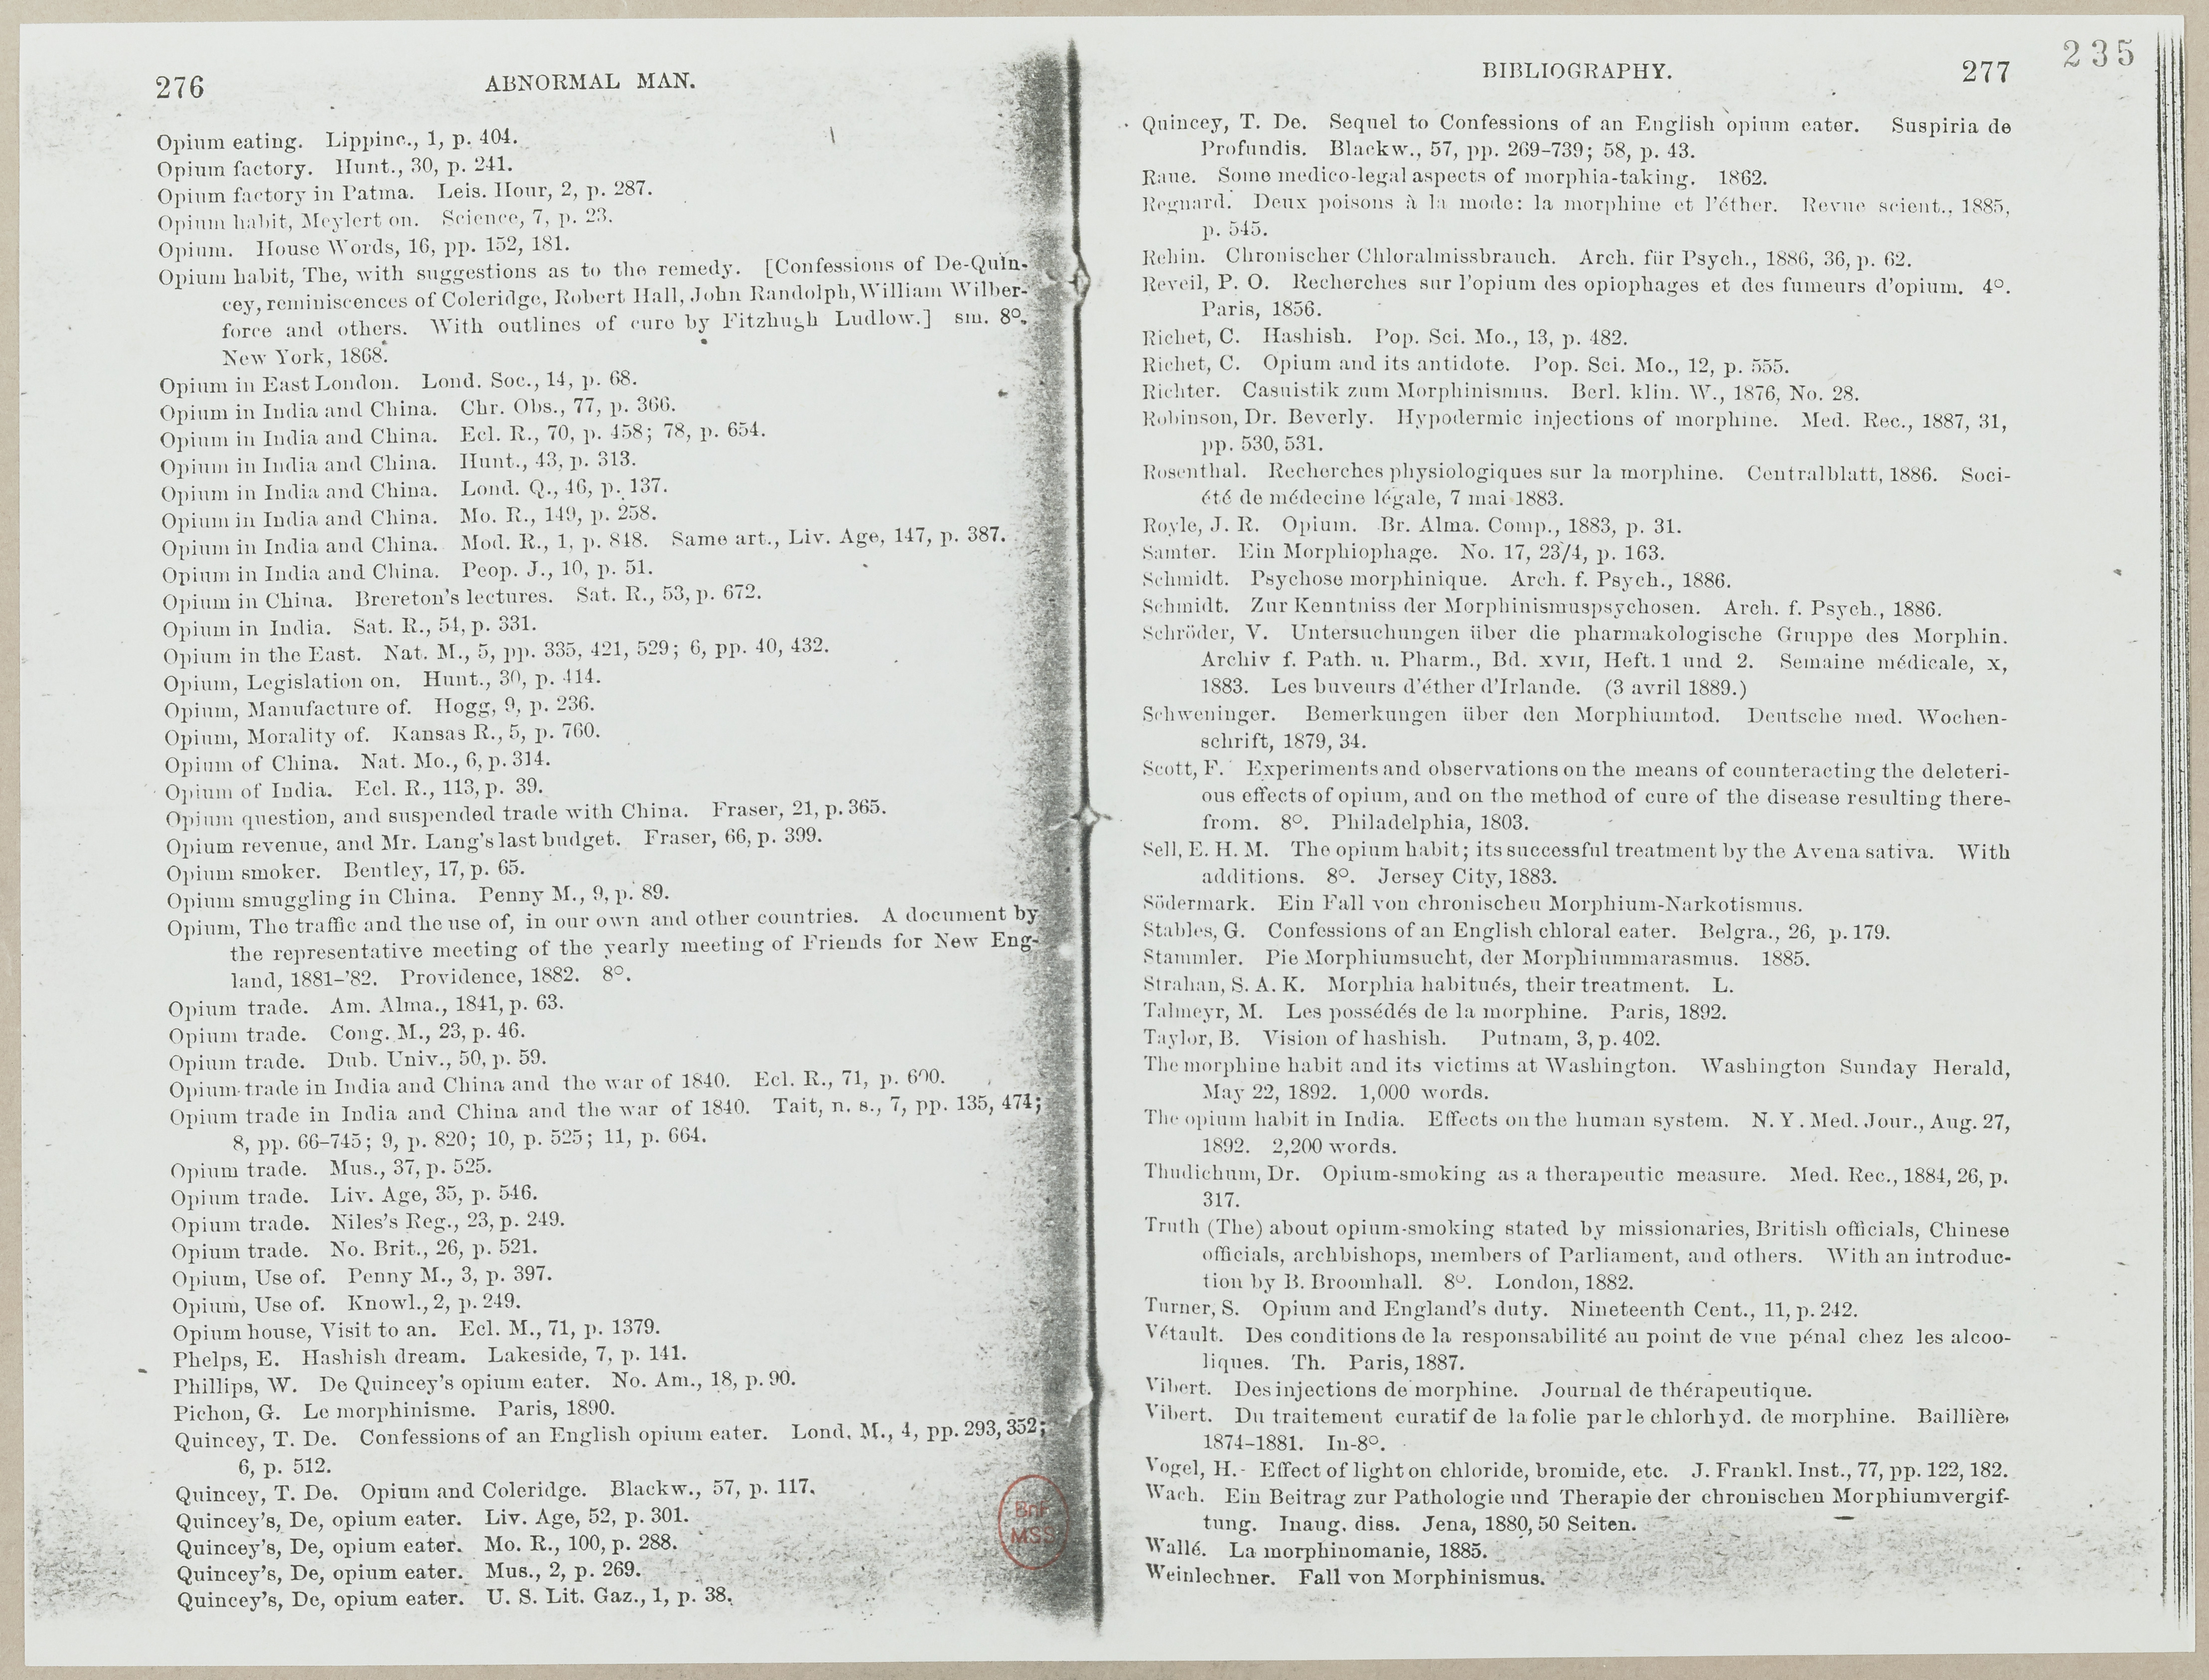 276 ABNORMAL MAN.
Opium eating. Lippinc., 1, p. 404.
Opium factory. Hunt., 30, p. 241.
Opium factory in Patma. Leis. Hour, 2, p. 287.
Opium habit, Meylert on. Science, 7, p. 23.
Opium. House Words, 16, pp. 152, 181.
Opium habit, The, with suggestions as to the remedy. [Confessions of De-Quin-
cey, reminiscences of Coleridge, Robert Hall, John Randolph, William Wilber-
force and others. With outlines of cure by Fitzhugh Ludlow.] sm. 8°.
New York, 1868.
Opium in East London. Lond. Soc., 14, p. 68.
Opium in India and China. Chr. Obs., 77, p. 366.
Opium in India and China. Ecl. R., 70, p. 458; 78, p. 654.
Opium in India and China. Hunt., 43, p. 313.
Opium in India and China. Lond. Q., 46, p. 137.
Opium in India and China. Mo. R., 149, p. 258.
Opium in India and China. Mod. R., 1, p. 848. Same art., Liv. Age, 147, p. 387.
Opium in India and China. Peop. J., 10, p. 51.
Opium in China. Brereton's lectures. Sat. R., 53, p. 672.
Opium in India. Sat. R., 54, p. 331.
Opium in the East. Nat. M., 5, pp. 335, 421, 529; 6, pp. 40, 432.
Opium, Legislation on. Hunt., 30, p. 414.
Opium, Manufacture of. Hogg, 9, p. 236.
Opium, Morality of. Kansas R., 5, p. 760.
Opium of China. Nat. Mo., 6, p. 314.
Opium of India. Ecl. R., 113, p. 39.
Opium question, and suspended trade with China. Fraser, 21, p. 365.
Opium revenue, and Mr. Lang's last budget. Fraser, 66, p. 399.
Opium smoker. Bentley, 17, p. 65.
Opium smuggling in China. Penny M., 9, p. 89.
Opium, The traffic and the use of, in our own and other countries. A document by
the representative meeting of the yearly meeting of Friends for New Eng-
land, 1881-'82. Providence, 1882. 8°.
Opium trade. Am. Alma., 1841, p. 63.
Opium trade. Cong. M., 23, p. 46.
Opium trade. Dub. Univ., 50, p. 59.
Opium trade in India and China and the war of 1840. Ecl. R., 71, p. 600.
Opium trade in India and China and the war of 1840. Tait, n. s., 7, pp. 135, 474;
8, pp. 66-745; 9, p. 820; 10, p. 525; 11, p. 664.
Opium trade. Mus., 37, p. 525.
Opium trade. Liv. Age, 35, p. 546.
Opium trade. Niles's Reg., 23, p. 249.
Opium trade. No. Brit., 26, p. 521.
Opium, Use of. Penny M., 3, p. 397.
Opium, Use of. Knowl., 2, p. 249.
Opium house, Visit to an. Ecl. M., 71, p. 1379.
Phelps, E. Hashish dream. Lakeside, 7, p. 141.
Phillips, W. De Quincey's opium eater. No. Am., 18, p. 90.
Pichon, G. Le morphinisme. Paris, 1890.
Quincey, T. De. Confessions of an English opium eater. Lond. M., 4, pp. 293, 352;
6, p. 512.
Quincey, T. De. Opium and Coleridge. Blackw., 57, p. 117.
Quincey's, De, opium eater. Liv. Age, 52, p. 301.
Quincey's, De, opium eater. Mo. R., 100, p. 288.
Quincey's, De, opium eater. Mus., 2, p. 269.
Quincey's, De, opium eater. U. S. Lit. Gaz., 1, p. 38.
BnF
MSS
BIBLIOGRAPHY. 277
235
Quincey, T. De. Sequel to Confessions of an English opium eater. Suspiria de
Profundis. Blackw., 57, pp. 269-739; 58, p. 43.
Rane. Some medico-legal aspects of morphia-taking. 1862.
Regnard. Deux poisons à la mode: la morphine et l'éther. Revue scient., 1885,
p. 545.
Rehin. Chronischer Chloralmissbrauch. Arch. für Psych., 1886, 36, p. 62.
Reveil, P. O. Recherches sur l'opium des opiophages et des fumeurs d'opium. 4°.
Paris, 1856.
Richet, C. Hashish. Pop. Sci. Mo., 13, p. 482.
Richet, C. Opium and its antidote. Pop. Sci. Mo., 12, p. 555.
Richter. Casuistik zum Morphinismus. Berl. klin. W., 1876, No. 28.
Robinson, Dr. Beverly. Hypodermic injections of morphine. Med. Rec., 1887, 31,
pp. 530, 531.
Rosenthal. Recherches physiologiques sur la morphine. Centralblatt, 1886. Soci-
été de médecine légale, 7 mai 1883.
Royle, J. R. Opium. Br. Alma. Comp., 1883, p. 31.
Samter. Ein Morphiophage. No. 17, 23/4, p. 163.
Schmidt. Psychose morphinique. Arch. f. Psych., 1886.
Schmidt. Zur Kenntniss der Morphinismuspsychosen. Arch. f. Psych., 1886.
Schröder, V. Untersuchungen über die pharmakologische Gruppe des Morphin.
Archiv f. Path. u. Pharm., Bd. XVII, Heft. 1 und 2. Semaine médicale, x,
1883. Les buveurs d'éther d'Irlande. (3 avril 1889.)
Schweninger. Bemerkungen über den Morphiumtod. Deutsche med. Wochen-
schrift, 1879, 34.
Scott, F. Experiments and observations on the means of counteracting the deleteri-
ous effects of opium, and on the method of cure of the disease resulting there-
from. 8°. Philadelphia, 1803.
Sell, E. H. M. The opium habit; its successful treatment by the Avena sativa. With
additions. 8°. Jersey City, 1883.
Södermark. Ein Fall von chronischen Morphium-Narkotismus.
Stables, G. Confessions of an English chloral eater. Belgra., 26, p. 179.
Stammler. Pie Morphiumsucht, der Morphiummarasmus. 1885.
Strahan, S. A. K. Morphia habitués, their treatment. L.
Talmeyr, M. Les possédés de la morphine. Paris, 1892.
Taylor, B. Vision of hashish. Putnam, 3, p. 402.
The morphine habit and its victims at Washington. Washington Sunday Herald,
May 22, 1892. 1,000 words.
The opium habit in India. Effects on the human system. N. Y. Med. Jour., Aug. 27,
1892. 2,200 words.
Thudichum, Dr. Opium-smoking as a therapeutic measure. Med. Rec., 1884, 26, p.
317.
Truth (The) about opium-smoking stated by missionaries, British officials, Chinese
officials, archbishops, members of Parliament, and others. With an introduc-
tion by B. Broomhall. 8°. London, 1882.
Turner, S. Opium and England's duty. Nineteenth Cent., 11, p. 242.
Vétault. Des conditions de la responsabilité au point de vue pénal chez les alcoo-
liques. Th. Paris, 1887.
Vibert. Des injections de morphine. Journal de thérapeutique.
Vibert. Du traitement curatif de la folie par le chlorhyd. de morphine. Baillière,
1874-1881. In-8°.
Vogel, H. Effect of light on chloride, bromide, etc. J. Frankl. Inst., 77, pp. 122, 182.
Wach. Ein Beitrag zur Pathologie und Therapie der chronischen Morphiumvergif-
tung. Inaug. diss. Jena, 1880, 50 Seiten.
Wallé. La morphinomanie, 1885.
Weinlechner. Fall von Morphinismus.